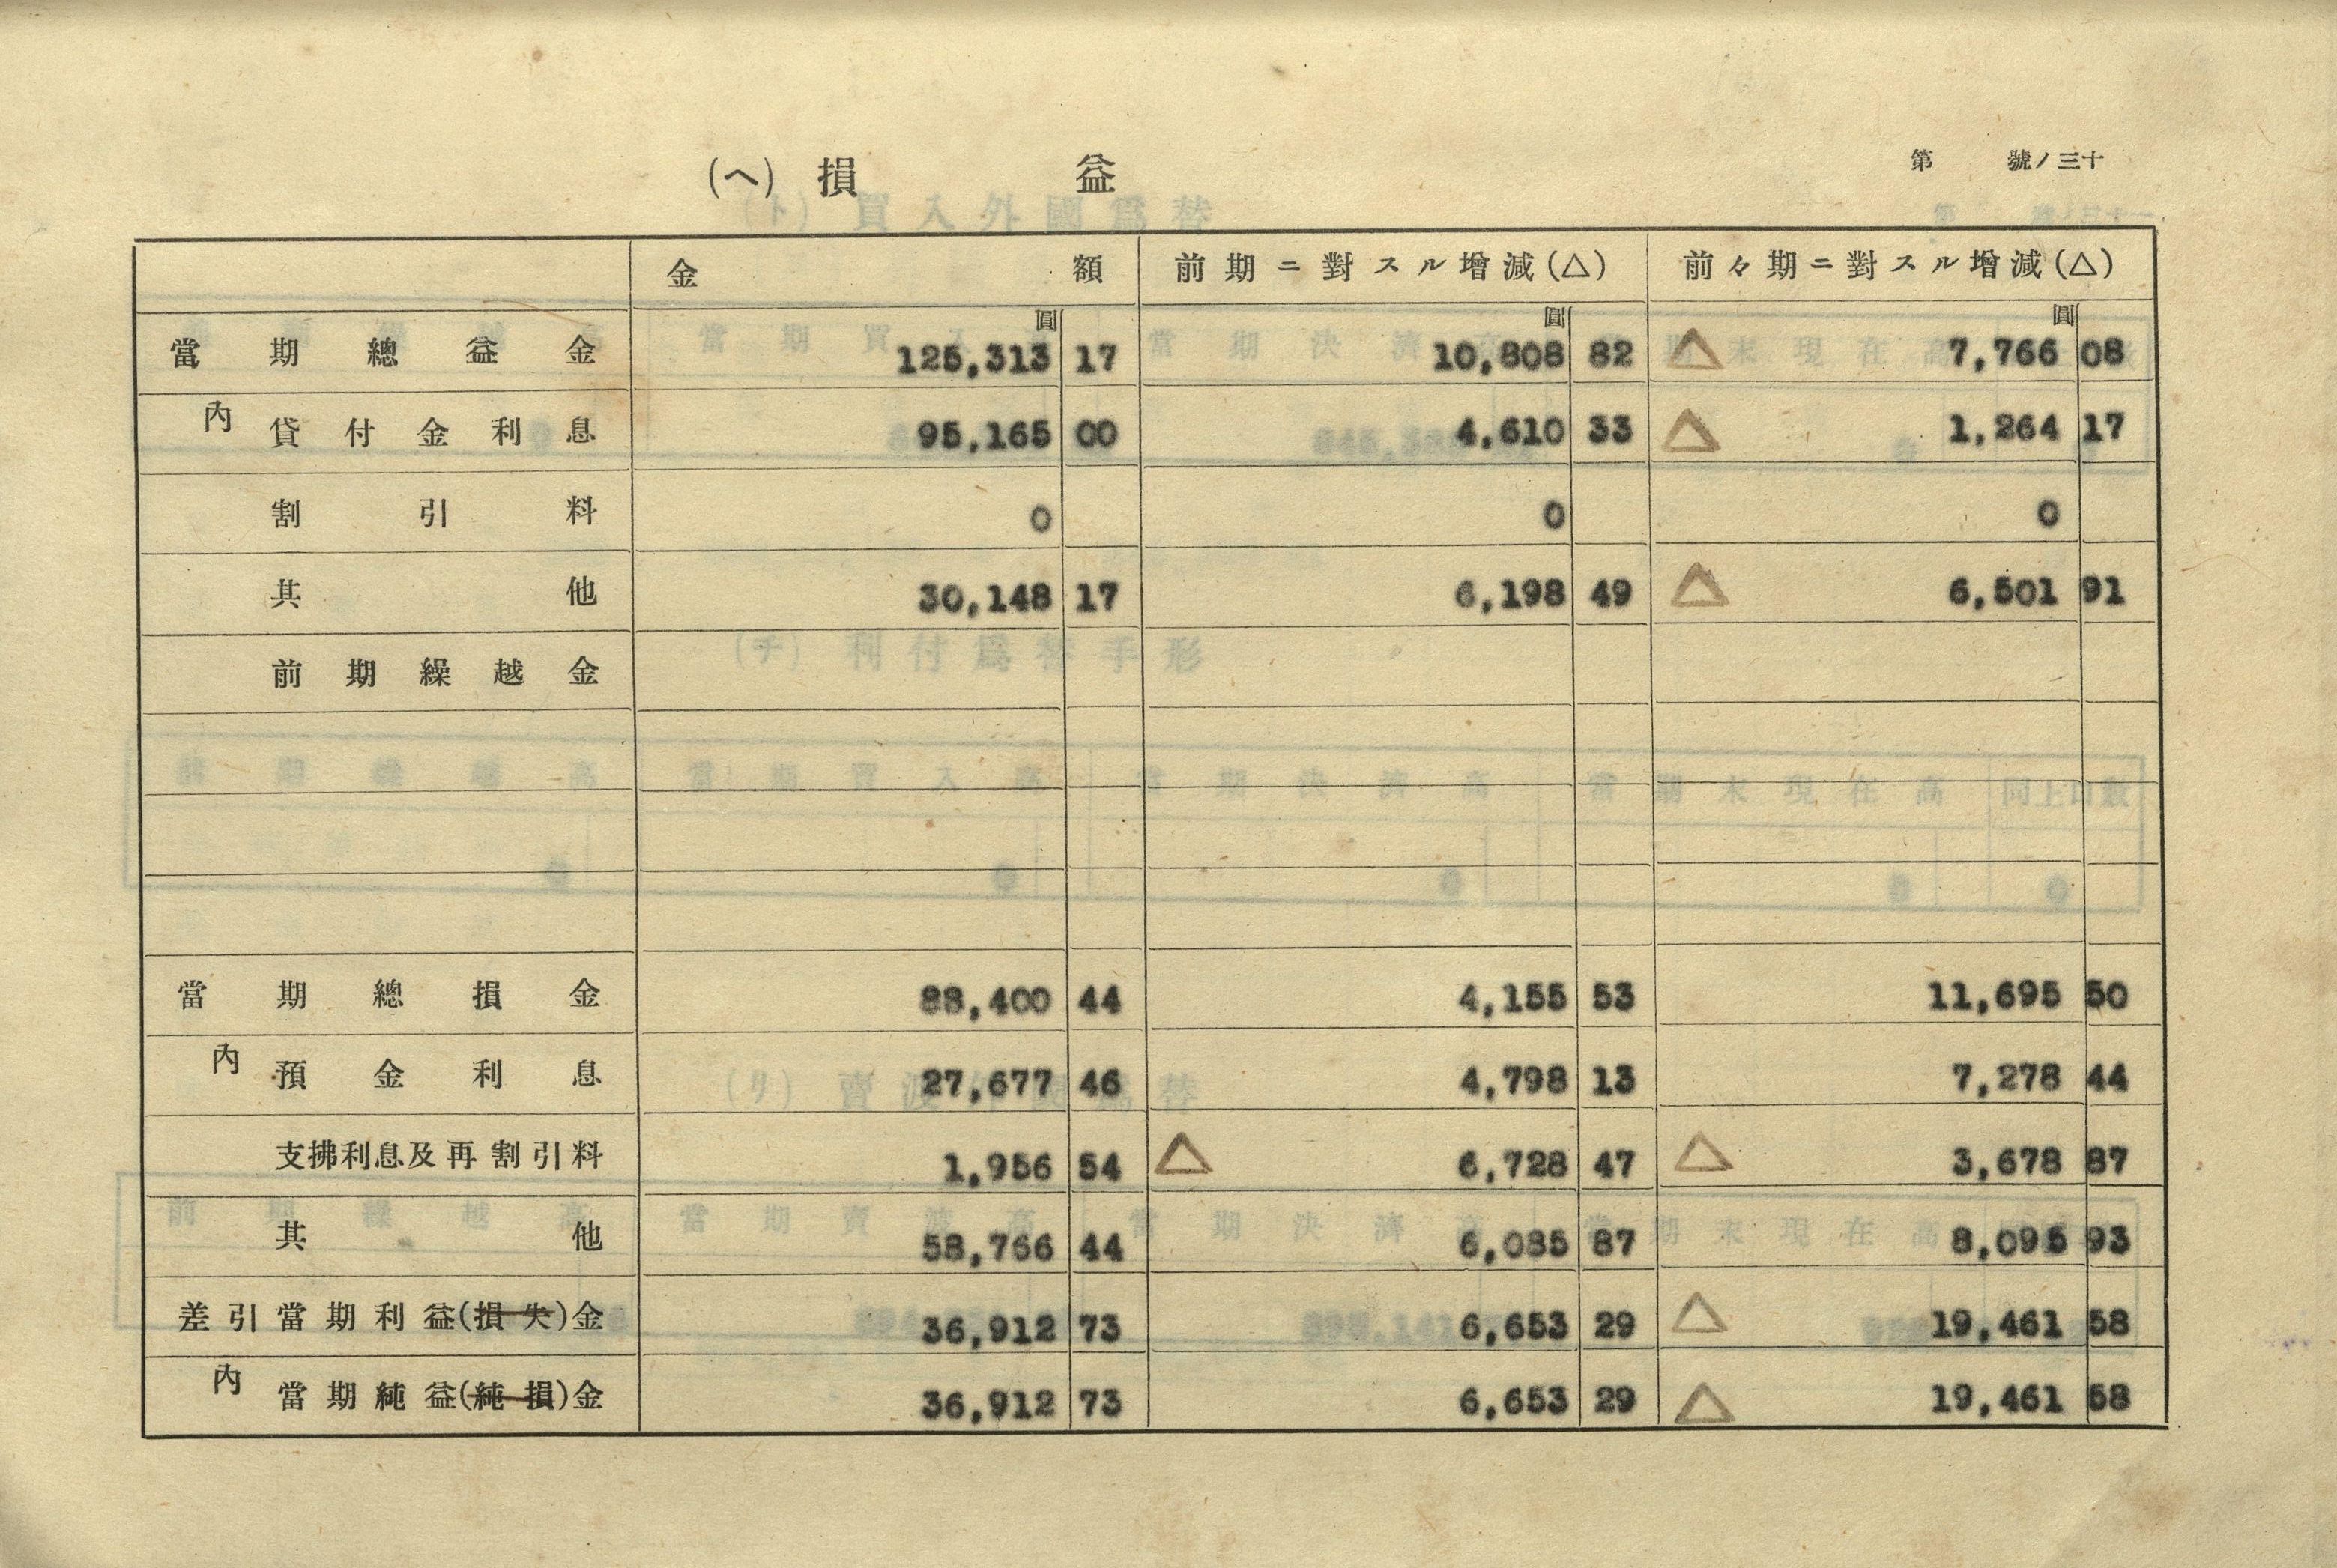 (ヘ) 損益
第 號ノ三十
金額 前期ニ對スル增減(△) 前々期ニ對スル增減(△)
圓 圓 圓
當期總益金 125,313 17 10,808 82 △ 7,766 08
內 貸付金利息 95,165 00 4,610 33 △ 1,264 17
割引料 0 0 0
其他 30,148 17 6,198 49 △ 6,501 91
前期繰越金
當期總損金 88,400 44 4,155 53 11,695 50
內 預金利息 27,677 46 4,798 13 7,278 44
支拂利息及再割引料 1,956 54 △ 6,728 47 △ 3,678 87
其他 58,766 44 6,085 87 8,095 93
差引當期利益(損失)金 36,912 73 6,653 29 △ 19,461 58
內 當期純益(純損)金 36,912 73 6,653 29 △ 19,461 58